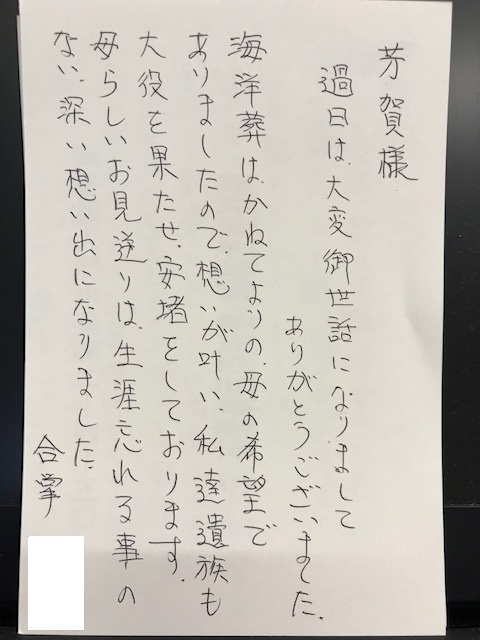 芳賀様
過日は、大変御世話になりまして
ありがとうございました.
海洋葬は、かねてよりの、母の希望で
ありましたので、想いが叶い、私達遺族も
大役を果たせ、安堵をしております.
母らしいお見送りは、生涯忘れる事の
ない、深い想い出になりました.
合掌